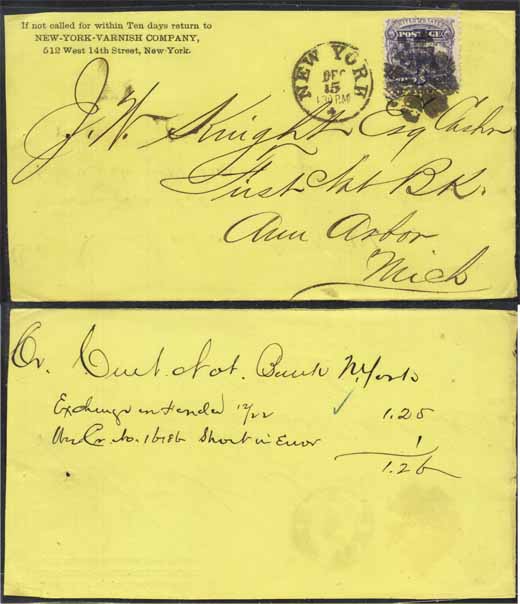 If not called for within Ten days return to
NEW-YORK-VARNISH COMPANY,
512 West 14th Street, New-York.
POSTAGE
NEW YORK
DEC
15
1.30 P.M
J. W. Knight Esq Cashr
First Nat Bk.
Ann Arbor
Mich
Cr. Nat. Bank N. York
Exchange 12/22 1.25
No. Short in Error 1
1.26